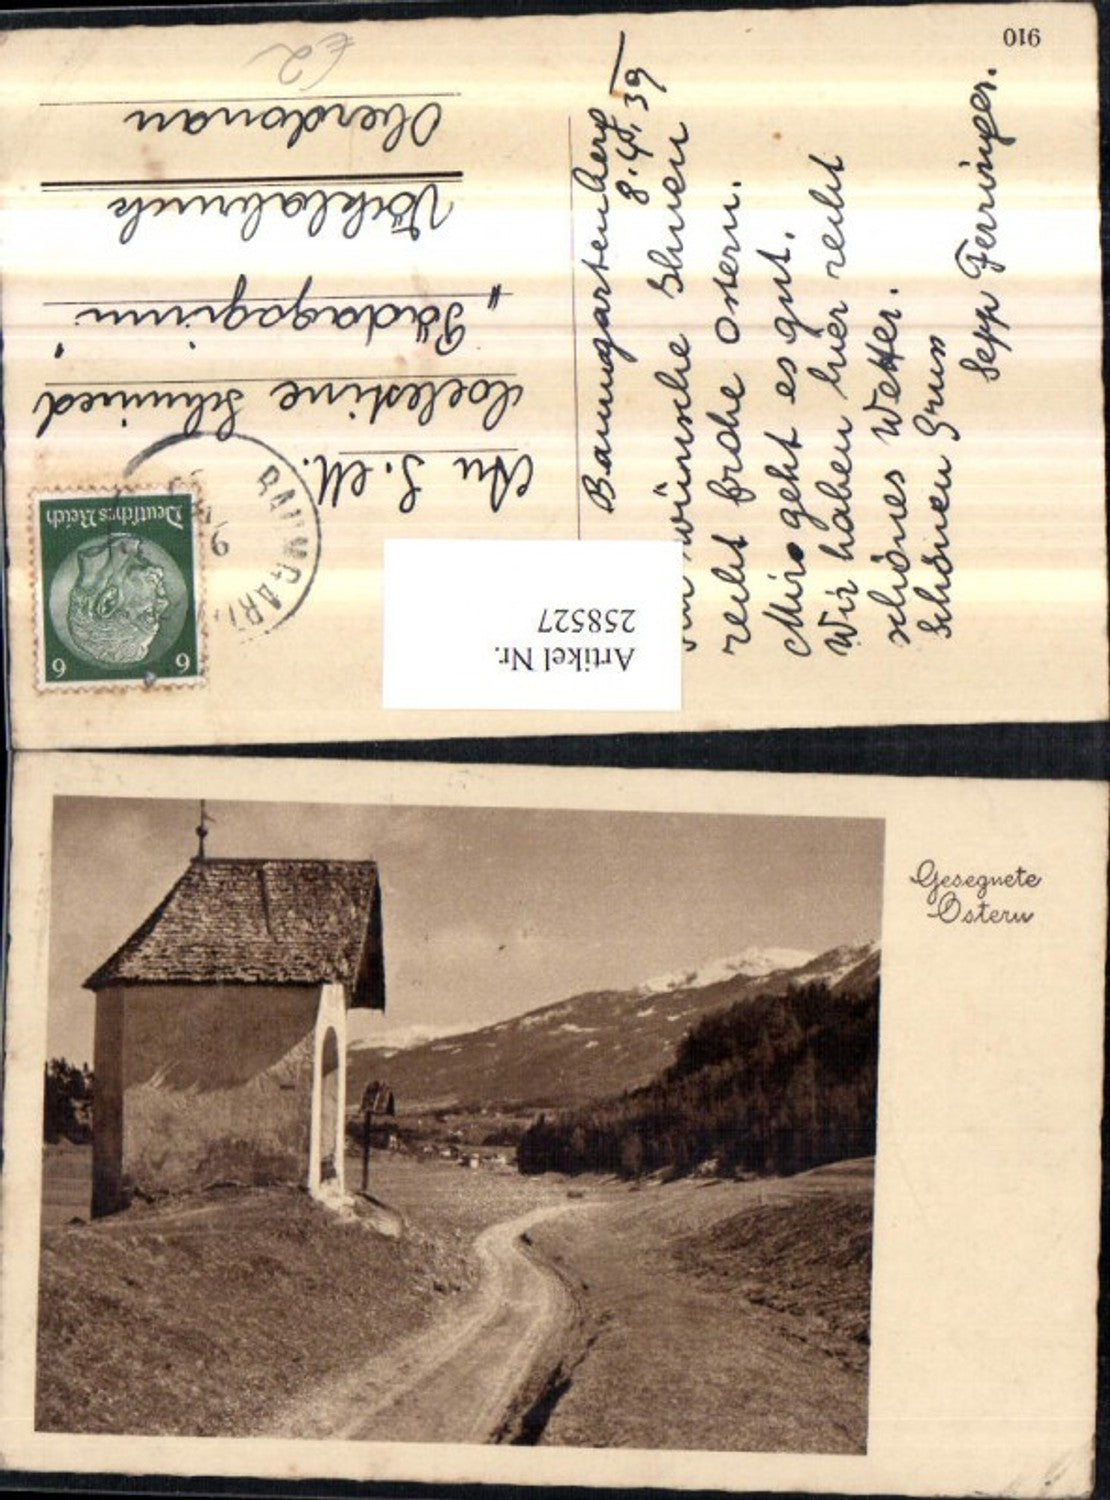 910
Baumgartenberg
8.4.39
wünsche Ihnen
recht frohe Ostern.
Mir geht es gut.
Wir haben hier recht
schönes Wetter.
Schönen Gruss
Sepp Ferringer.
An S. M.
Coelestine Schmied
Pädagogium
Vöcklabruck
Oberdonau
£2
Deutsches Reich
6 6
BAUMGART
9
Artikel Nr.
258527
Gesegnete
Ostern